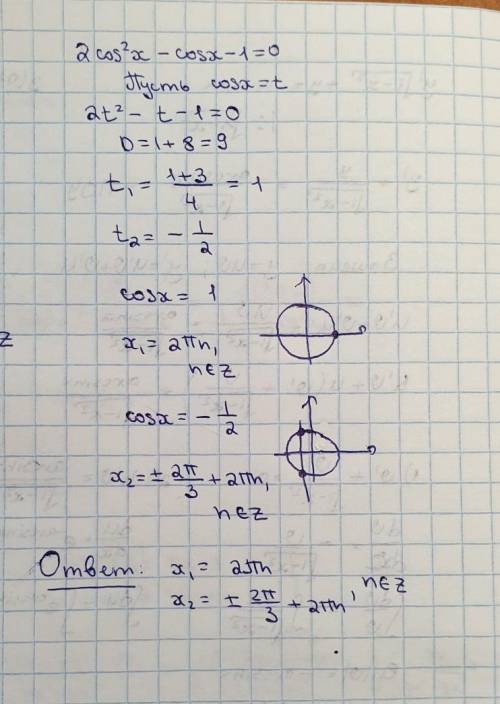 2cos²x - cosx - 1 = 0
Пусть cosx = t
2t² - t - 1 = 0
D = 1 + 8 = 9
t₁ = (1+3)/4 = 1
t₂ = - 1/2
cosx = 1
Z
x₁ = 2πn,
n∈Z
cosx = - 1/2
x₂ = ± 2π/3 + 2πn,
n∈Z
Ответ: x₁ = 2πn
x₂ = ± 2π/3 + 2πn, n∈Z